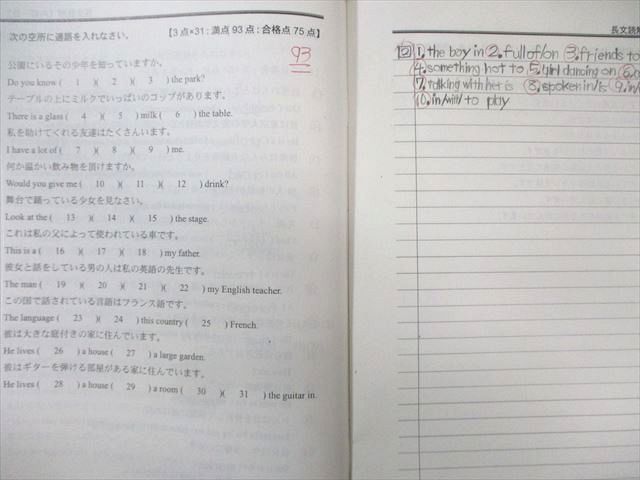 次の空所に適語を入れなさい。
【3点×31：満点93点：合格点75点】
93
公園にいるその少年を知っていますか。
Do you know ( 1 )( 2 )( 3 ) the park?
テーブルの上にミルクでいっぱいのコップがあります。
There is a glass ( 4 )( 5 ) milk ( 6 ) the table.
私を助けてくれる友達はたくさんいます。
I have a lot of ( 7 )( 8 )( 9 ) me.
何か温かい飲み物を頂けますか。
Would you give me ( 10 )( 11 )( 12 ) drink?
舞台で踊っている少女を見なさい。
Look at the ( 13 )( 14 )( 15 ) the stage.
これは私の父によって使われている車です。
This is a ( 16 )( 17 )( 18 ) my father.
彼女と話をしている男の人は私の英語の先生です。
The man ( 19 )( 20 )( 21 )( 22 ) my English teacher.
この国で話されている言語はフランス語です。
The language ( 23 )( 24 ) this country ( 25 ) French.
彼は大きな庭付きの家に住んでいます。
He lives ( 26 ) a house ( 27 ) a large garden.
彼はギターを弾ける部屋がある家に住んでいます。
He lives ( 28 ) a house ( 29 ) a room ( 30 )( 31 ) the guitar in.
長文読解
1. the boy in 2. full of/on 3. friends to
4. something hot to 5. girl dancing on 6.
7. talking with her is 8. spoken in/is 9. in/
10. in/with/ to play